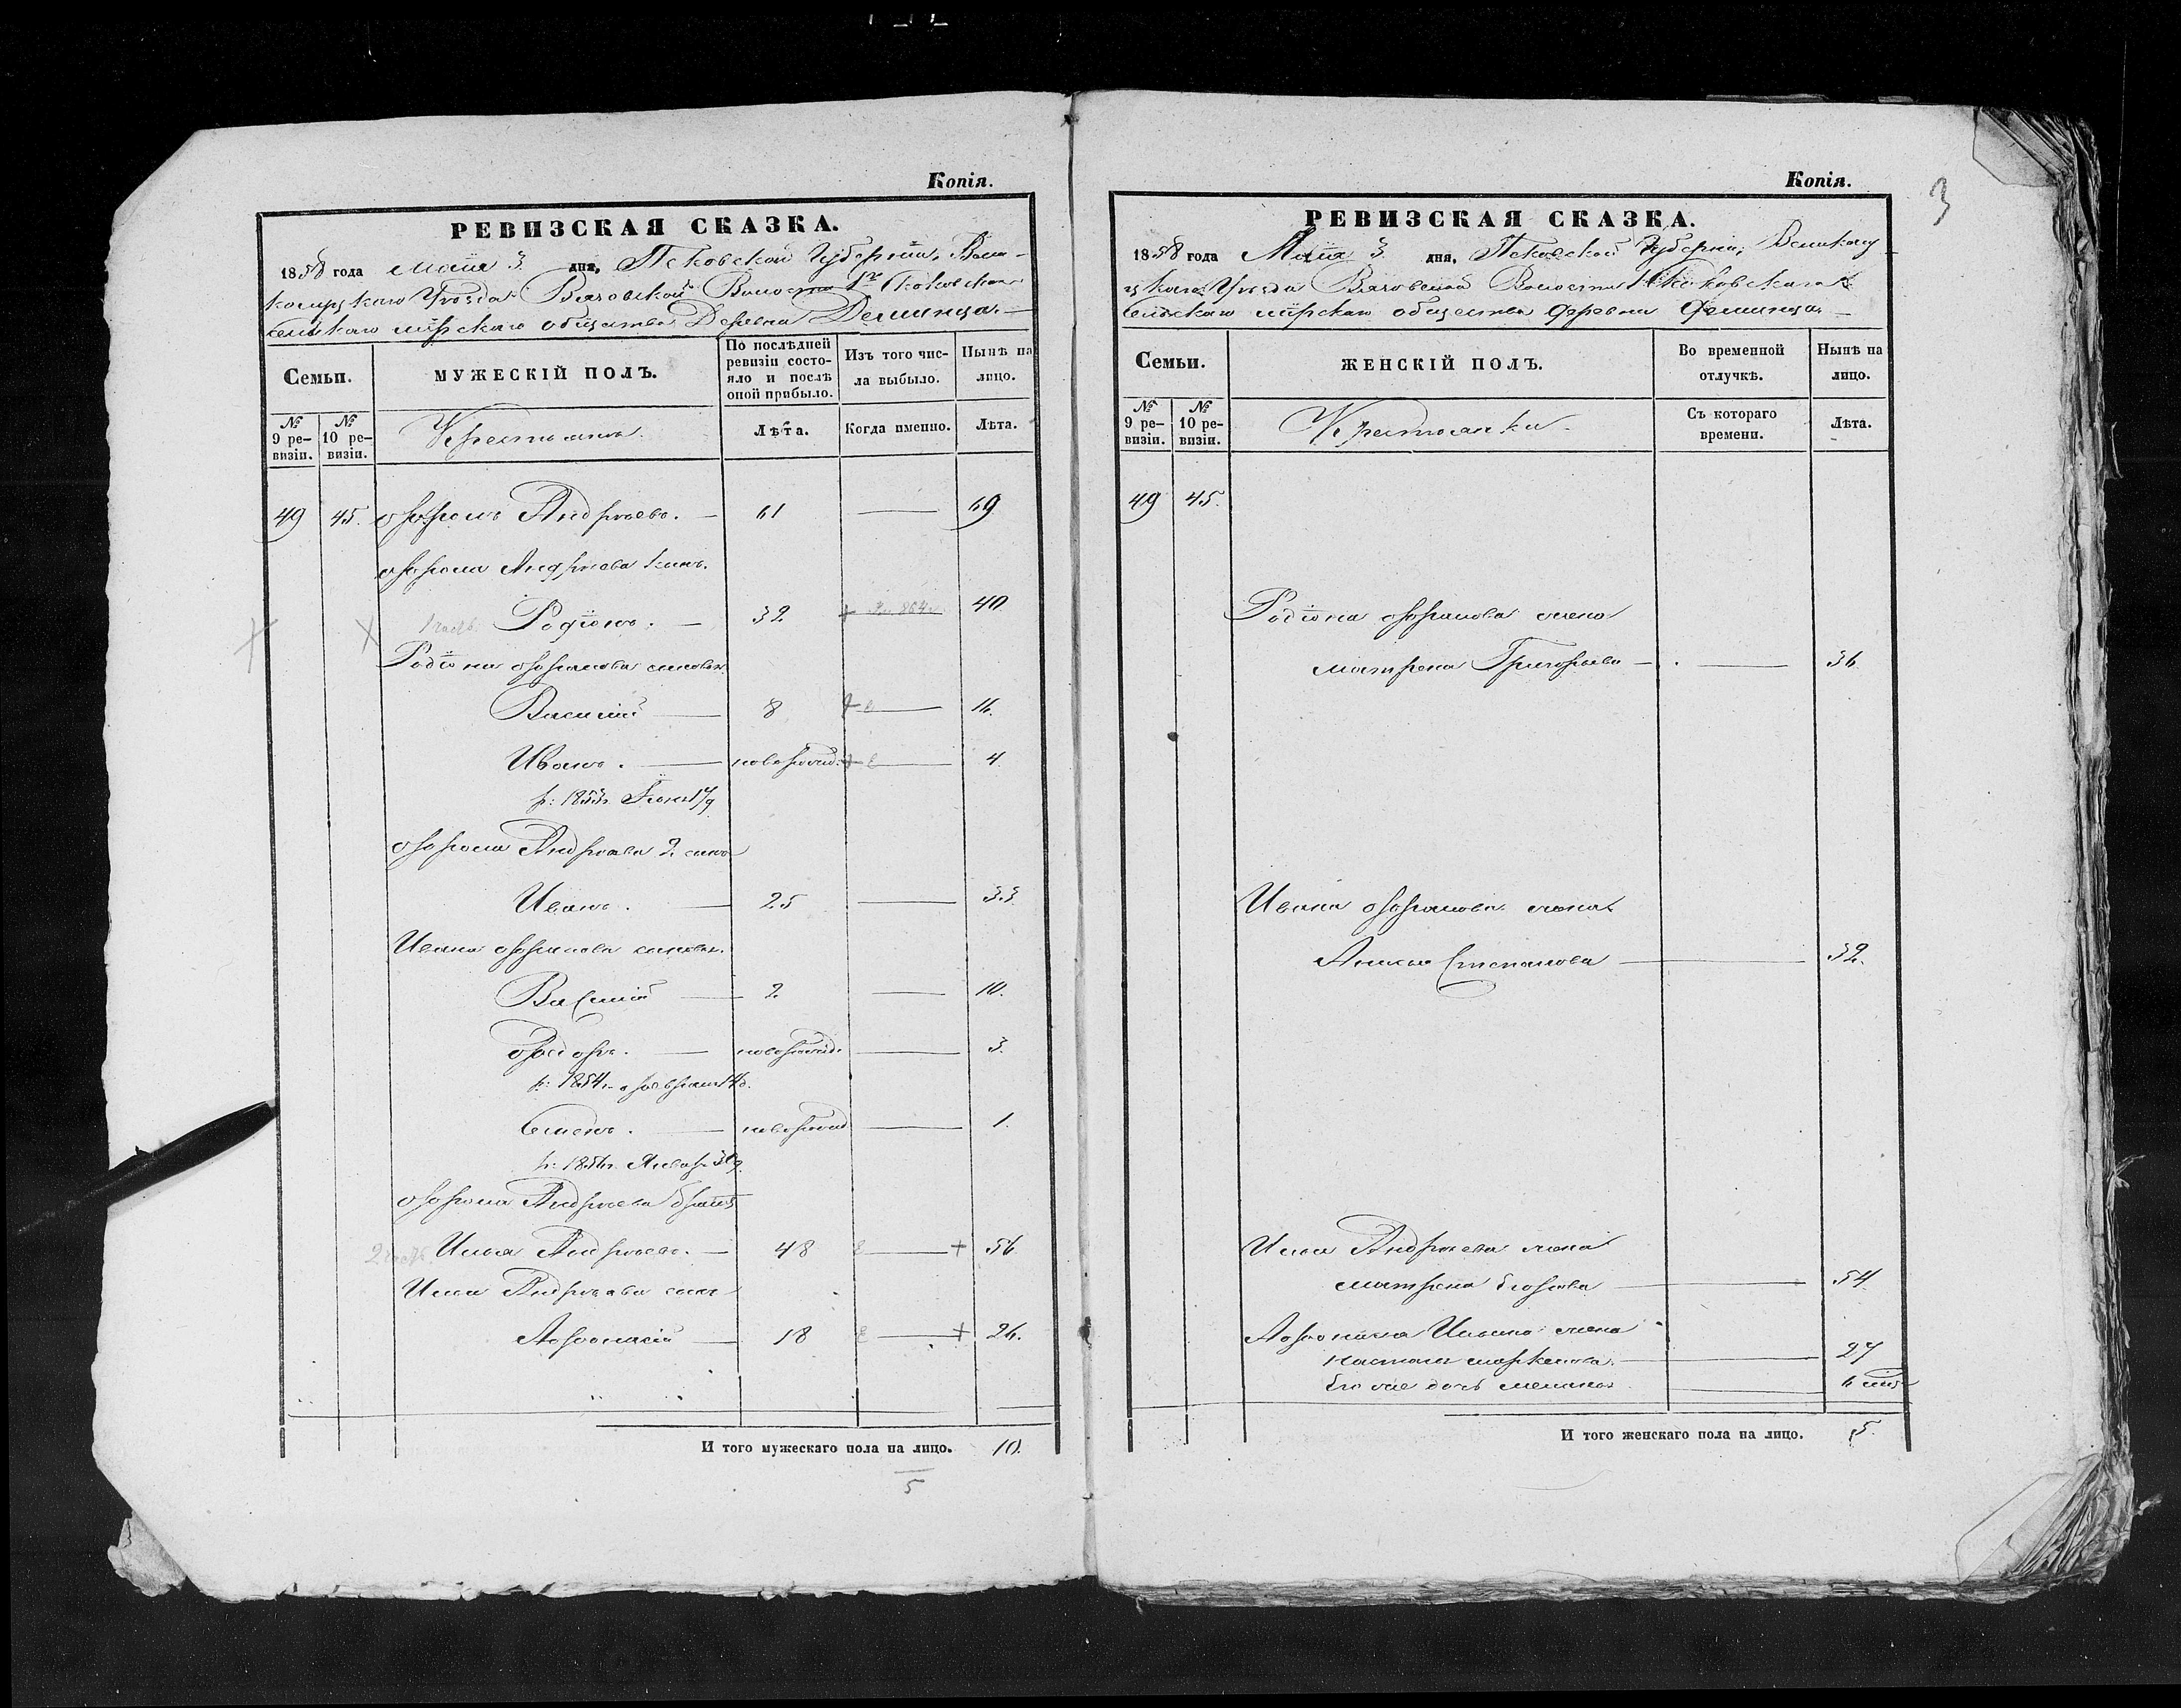 Копія.
РЕВИЗСКАЯ СКАЗКА.
1858 года Маія 3 дня, Псковской Губерніи, Вели-
колуцкаго Уѣзда Вязовской Волости 1го
сельскаго мірскаго общества Деревни
Семьи.
МУЖЕСКІЙ ПОЛЪ.
По послѣдней ревизіи состояло и послѣ оной прибыло.
Изъ того числа выбыло.
Нынѣ на лицо.
№ 9 ревизіи.
№ 10 ревизіи.
Крестьяне
Лѣта.
Когда именно.
Лѣта.
49 45. Ефремъ Андреевъ. 61 69
Ефрема Андреева сынъ.
1 часть Родіонъ. 32 40
Родіона Ефремова сыновья
Василій 8 16.
Иванъ. новорожд. 4
р: 1853г.
Ефрема Андреева 2 сынъ
Иванъ. 25 33
Ивана Ефремова сыновья.
Василій 2 10.
Федоръ. новорожд. 3.
р: 1854г. февраля
Семенъ. новорожд 1.
Ефрема Андреева братъ
2 часть Илья Андреевъ. 48 56
Ильи Андреева сынъ
Афонасій 18 26.
И того мужескаго пола на лицо. 10.
5
Копія.
3
РЕВИЗСКАЯ СКАЗКА.
1858 года Маія 3 дня, Псковской Губерніи, Великолу-
цкаго Уѣзда Вязовской Волости 1
сельскаго мірскаго общества Деревни
Семьи.
ЖЕНСКІЙ ПОЛЪ.
Во временной отлучкѣ.
Нынѣ на лицо.
№ 9 ревизіи.
№ 10 ревизіи.
Крестьянки
Съ котораго времени.
Лѣта.
49 45.
Родіона Ефремова жена
Матрена Григорьева 36.
Ивана Ефремова жена
Степанова 32.
Ильи Андреева жена
Матрена 54
Афонасія Ильина жена
27
Его же дочь
И того женскаго пола на лицо. 5.